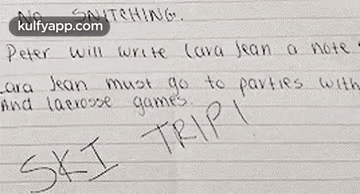 NO SNITCHING.
kulfyapp.com
Peter will write Lara Jean a note
Lara Jean must go to parties with
And lacrosse games.
SKI TRIP!